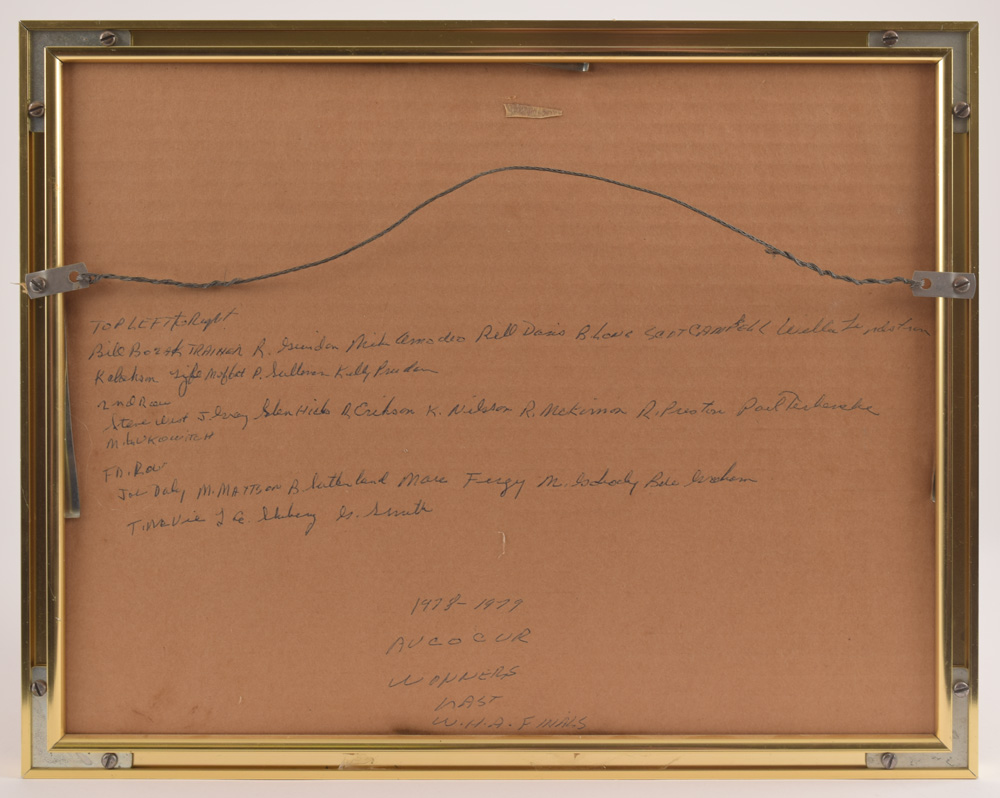 TOP LEFT to Right
Bill Bozak TRAINER R. Guindon Mike Amodeo Bill Davis B Lowe SCOTT CAMPBELL Willie Lindstrom
Lyle Moffat P. Sullivan Kelly Pruden
2nd Row
Steve West J. Gray Glen Hicks R. Erikson K. Nilsson R. McKinnon R. Preston Paul Terbenche
M. LUKOWICH
Joe Daley M. MATTSON B. Sutherland Marc Fergy M. Gobuty Bill Graham
T. McVie G. Smith
1978-1979
AVCO CUP
WINNERS
LAST
W.H.A. FINALS